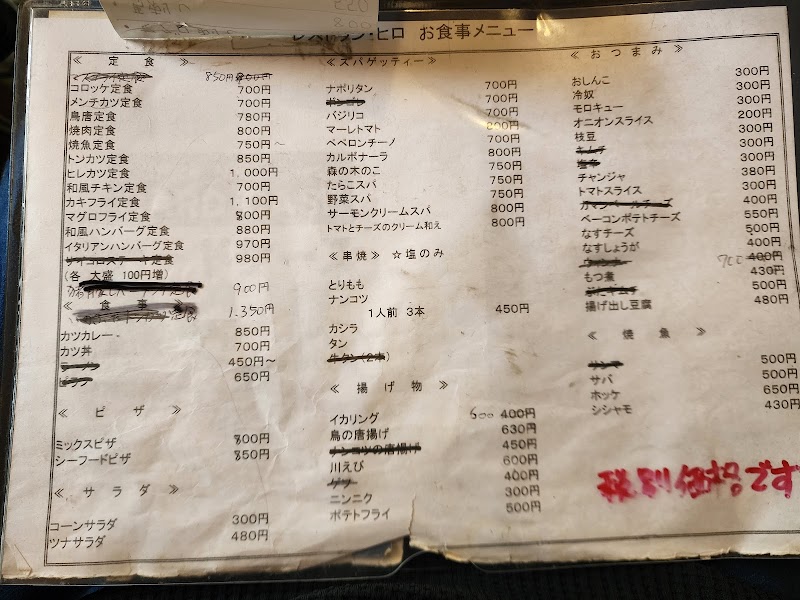 レストラン・ヒロ お食事メニュー
≪ 定 食 ≫
850円
コロッケ定食 700円
メンチカツ定食 700円
鳥唐定食 780円
焼肉定食 800円
焼魚定食 750円~
トンカツ定食 850円
ヒレカツ定食 1,000円
和風チキン定食 700円
カキフライ定食 1,100円
マグロフライ定食 800円
和風ハンバーグ定食 880円
イタリアンハンバーグ定食 970円
サイコロステーキ定食 980円
(各 大盛 100円増)
900円
≪ 食 事 ≫
1.350円
カツカレー 850円
カツ丼 700円
450円~
650円
≪ ピ ザ ≫
ミックスピザ 800円
シーフードピザ 850円
≪ サ ラ ダ ≫
コーンサラダ 300円
ツナサラダ 480円
≪スパゲッティー≫
ナポリタン 700円
ボンゴレ 700円
バジリコ 700円
マーレトマト 800円
ペペロンチーノ 700円
カルボナーラ 800円
森の木のこ 750円
たらこスパ 750円
野菜スパ 750円
サーモンクリームスパ 800円
トマトとチーズのクリーム和え 800円
≪ 串焼 ≫ ☆塩のみ
とりもも
ナンコツ
1人前 3本 450円
カシラ
タン
牛タン(2本)
≪ 揚 げ 物 ≫
イカリング 600 400円
鳥の唐揚げ 630円
ナンコツの唐揚げ 450円
川えび 600円
ゲソ 400円
ニンニク 300円
ポテトフライ 500円
≪ お つ ま み ≫
おしんこ 300円
冷奴 300円
モロキュー 300円
オニオンスライス 200円
枝豆 300円
キムチ 300円
300円
チャンジャ 380円
トマトスライス 300円
カマンベールチーズ 400円
ベーコンポテトチーズ 550円
なすチーズ 500円
なすしょうが 400円
700 400円
もつ煮 430円
500円
揚げ出し豆腐 480円
≪ 焼 魚 ≫
500円
サバ 500円
ホッケ 650円
シシャモ 430円
税別価格です